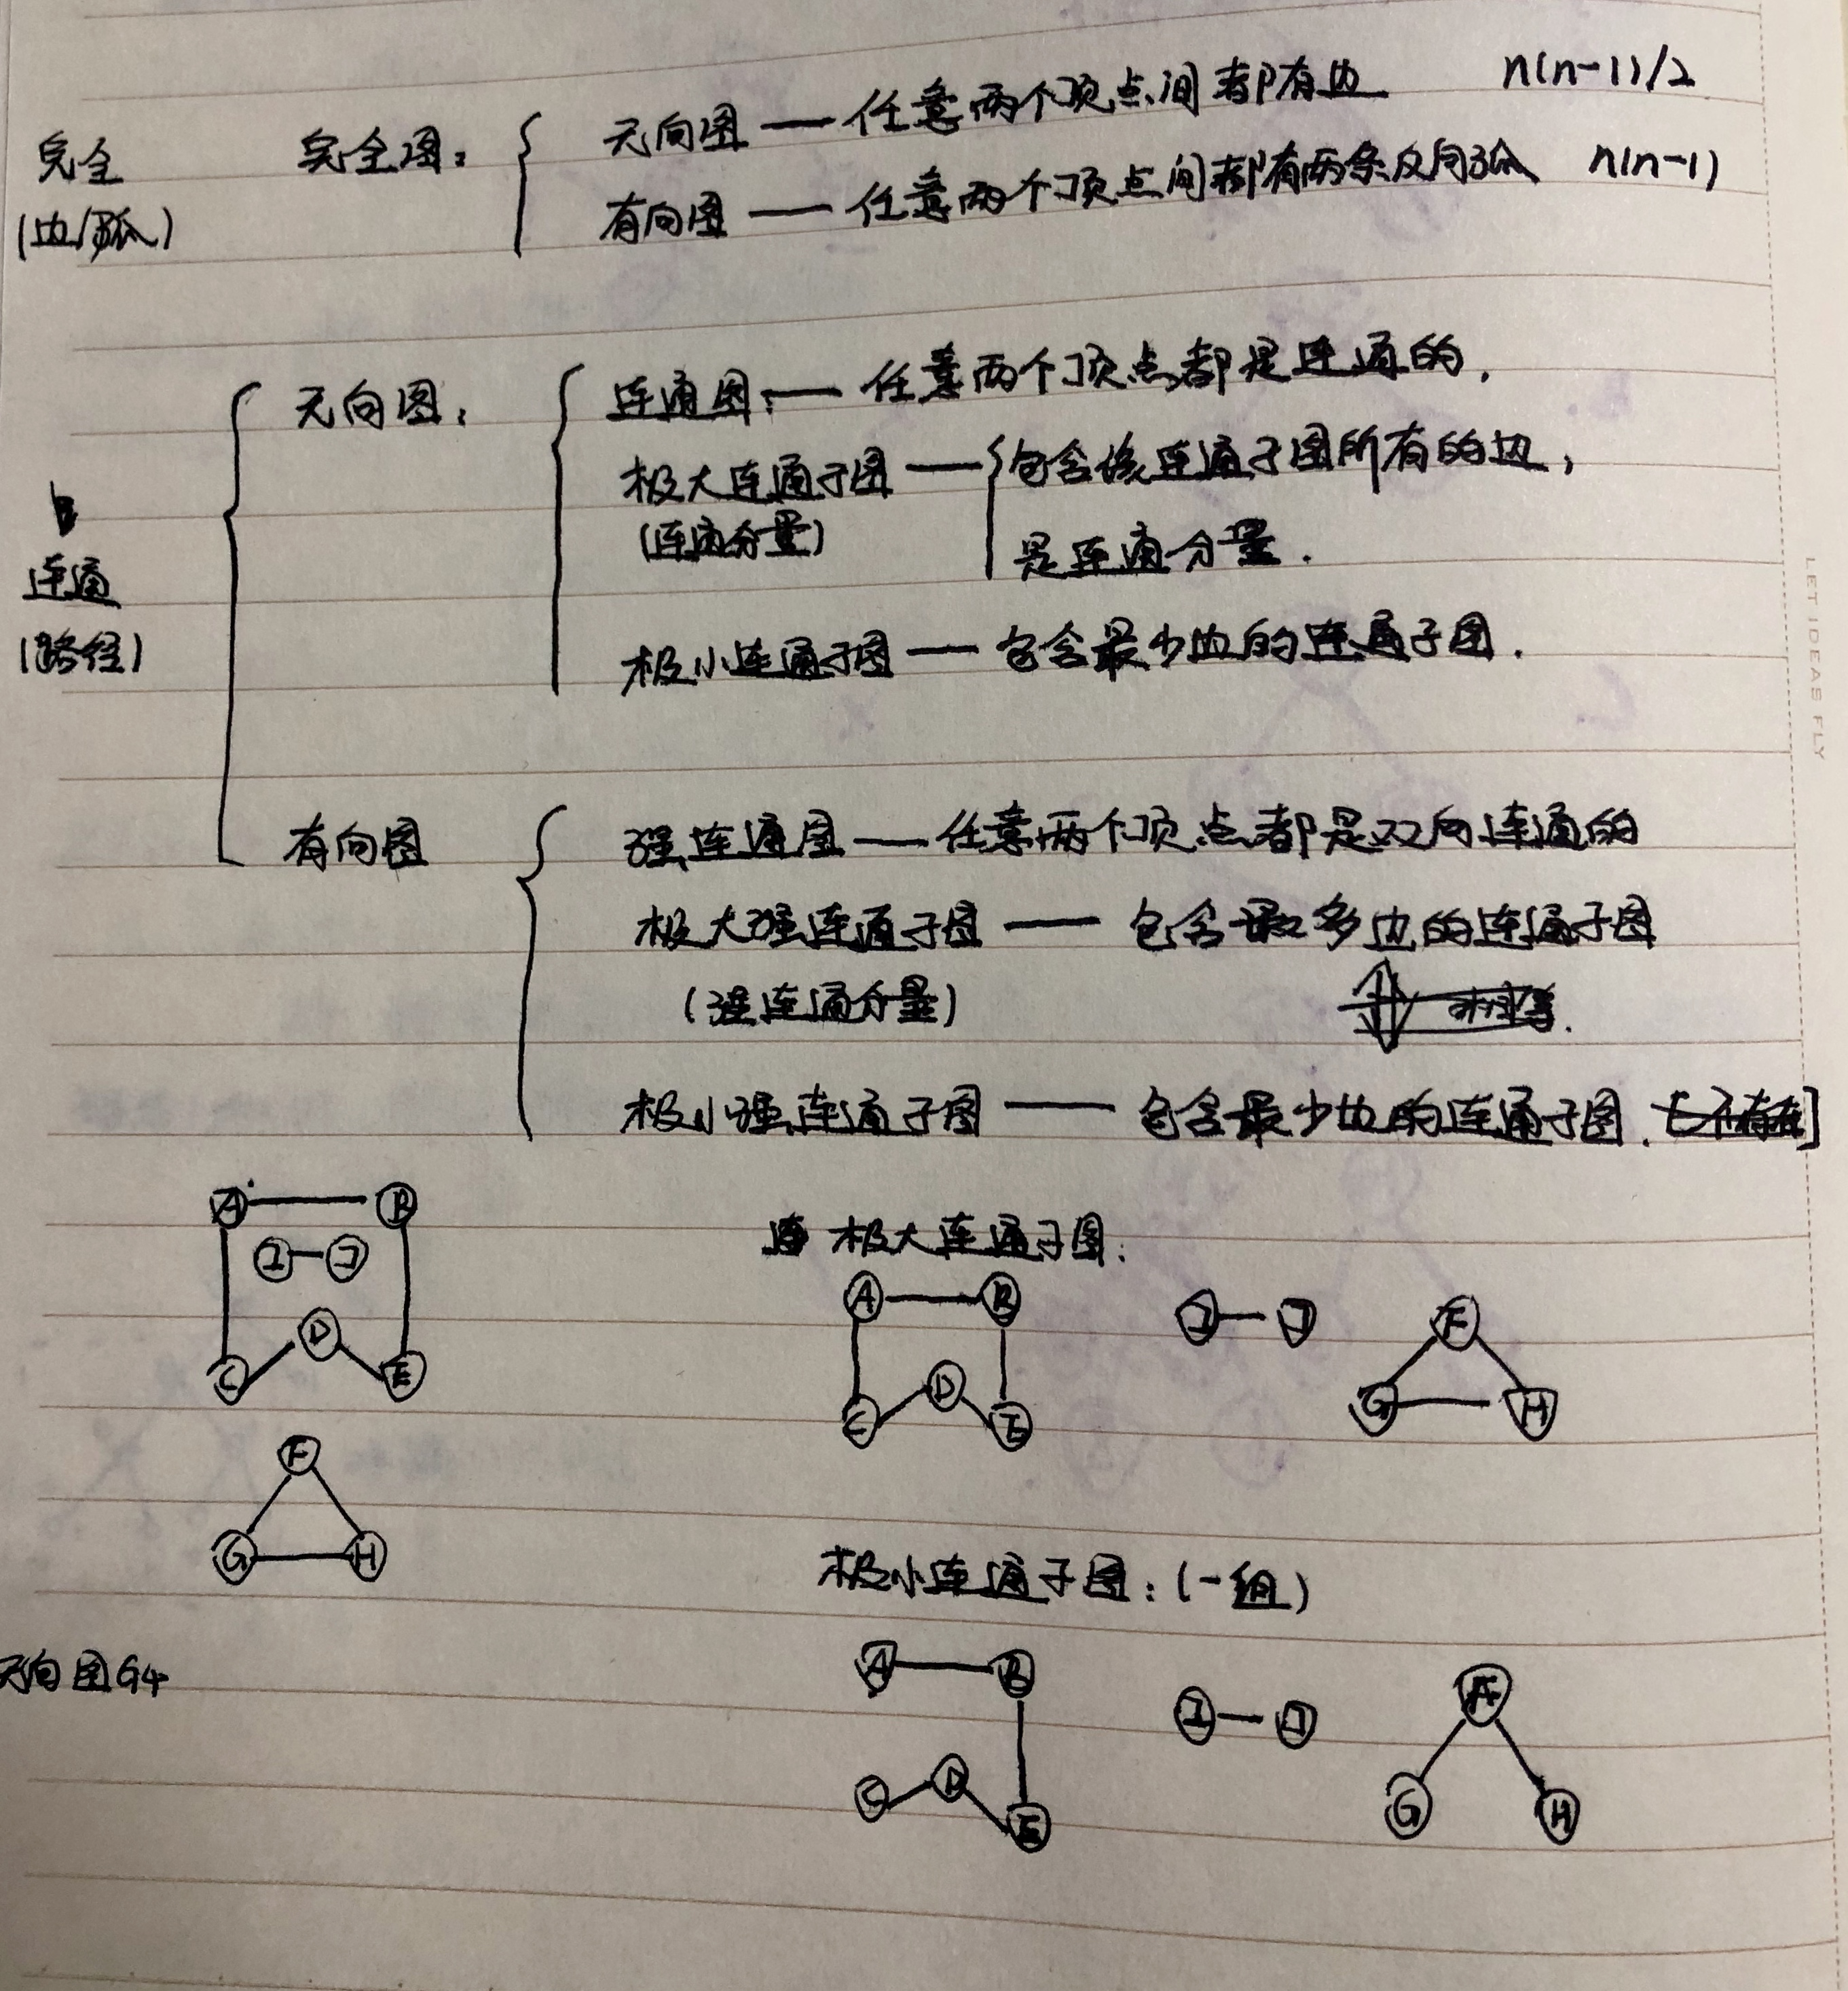 完全 完全图: 无向图 — 任意两个顶点间都有边 n(n-1)/2
(边/弧) 有向图 — 任意两个顶点间都有两条反向弧 n(n-1)
无向图: 连通图: — 任意两个顶点都是连通的.
极大连通子图 — 包含该连通子图所有的边,
(连通分量) 是连通分量.
连通
(路径) 极小连通子图 — 包含最少边的连通子图.
LET IDEAS FLY
有向图 强连通图 — 任意两个顶点都是双向连通的
极大强连通子图 — 包含最多边的连通子图
(强连通分量)
极小强连通子图 — 包含最少边的连通子图.
A B
I J
D
C E
F
G H
无向图G4
极大连通子图:
A B I J F
C D E G H
极小连通子图: (一组)
A B I J F
C D E G H